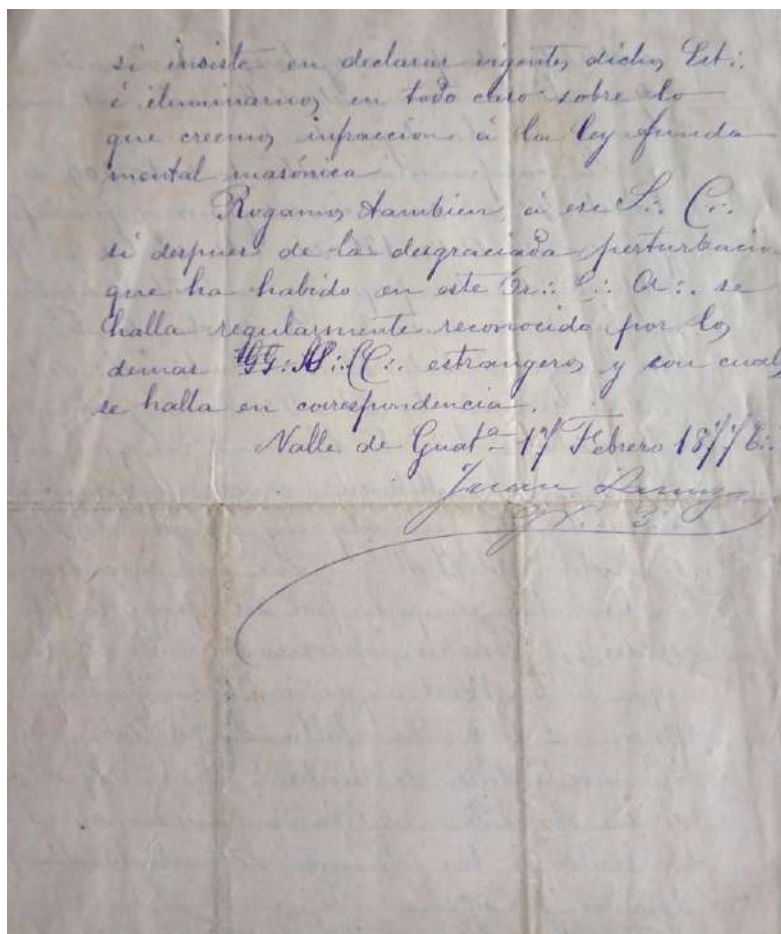 si insiste en declarar vigentes dichos Est∴
é iluminarnos en todo caso sobre lo
que creemos infraccion á la ley funda
mental masónica
Rogamos tambien á ese S∴ C∴
si despues de la desgraciada perturbacion
que ha habido en este Or∴ C∴ A∴ se
halla regularmente reconocido por los
demas GG∴ SS∴ CC∴ estrangeros y con cuales
se halla en correspondencia.
Valle de Guatª 17 Febrero 1877 E∴
Juan